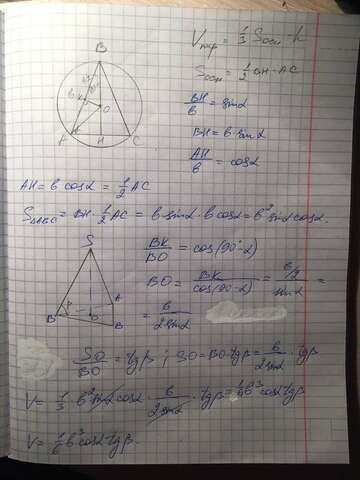 B
b/2
K
O
A
H
C
Vпир = 1/3 Sосн · h
Sосн = 1/2 BH · AC
BH/b = sinα
BH = b · sinα
AH/b = cosα
AH = b cosα = 1/2 AC
S△ABC = BH · 1/2 AC = b sinα · b cosα = b² sinα cosα.
S
A
B
β
O
B
BK/BO = cos(90-α)
BO = BK/cos(90-α) = b/2/sinα =
= b/2sinα
SO/BO = tgβ ; SO = BO tgβ = b/2sinα · tgβ
V = 1/3 b² sinα cosα · b/2sinα · tgβ = 1/6 b³ cosα tgβ
V = 1/6 b³ cosα tgβ.